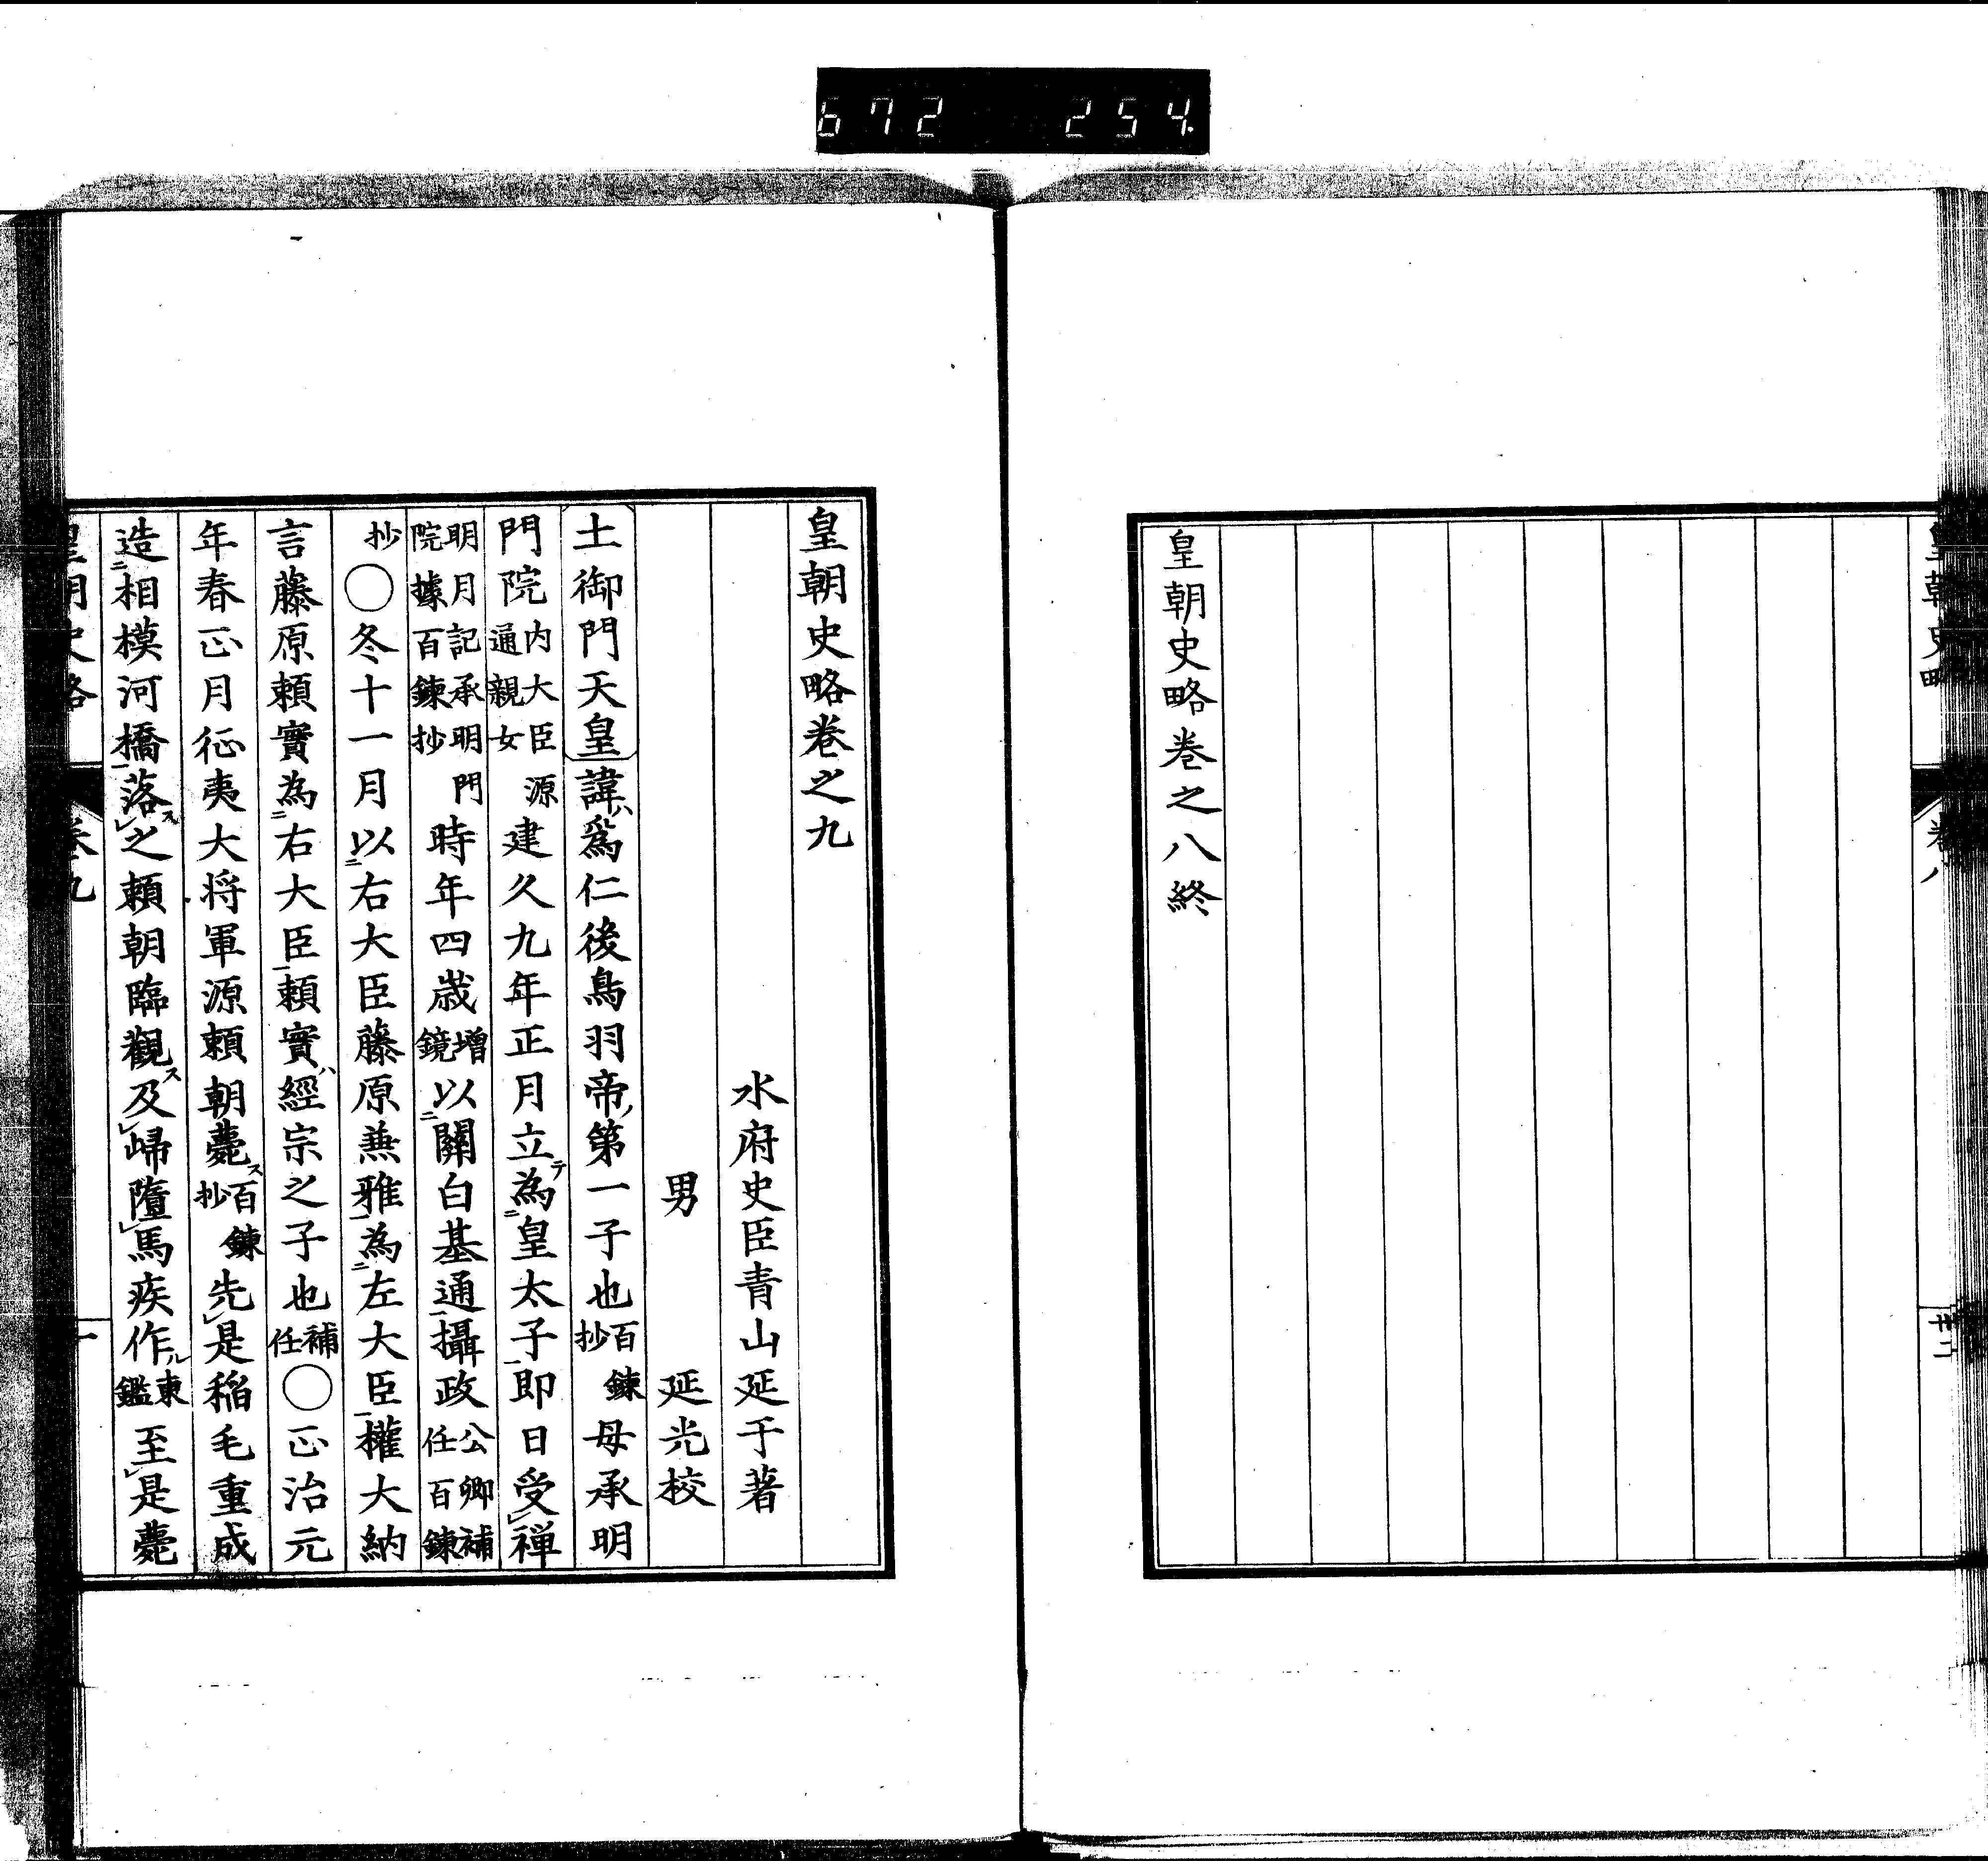 672 254.
皇朝史略 卷八 卅二
皇朝史略卷之八終
皇朝史略卷之九
水府史臣青山延于著
男 延光校
土御門天皇諱ハ爲仁後鳥羽帝ノ第一子也百鍊抄母承明
門院内大臣源通親女建久九年正月立テ為二皇太子一即日受レ禅
明月記承明門院據百鍊抄時年四歳增鏡以二關白基通一攝政公卿補任百鍊
抄○冬十一月以二右大臣藤原兼雅一為二左大臣一權大納
言藤原頼實為二右大臣一頼實ハ經宗之子也補任○正治元
年春正月征夷大将軍源頼朝薨ス百鍊抄先レ是稲毛重成
造二相模河橋一落スレ之頼朝臨觀ス及レ歸墮レ馬疾作ル東鑑至レ是薨
皇朝史略 卷九 一